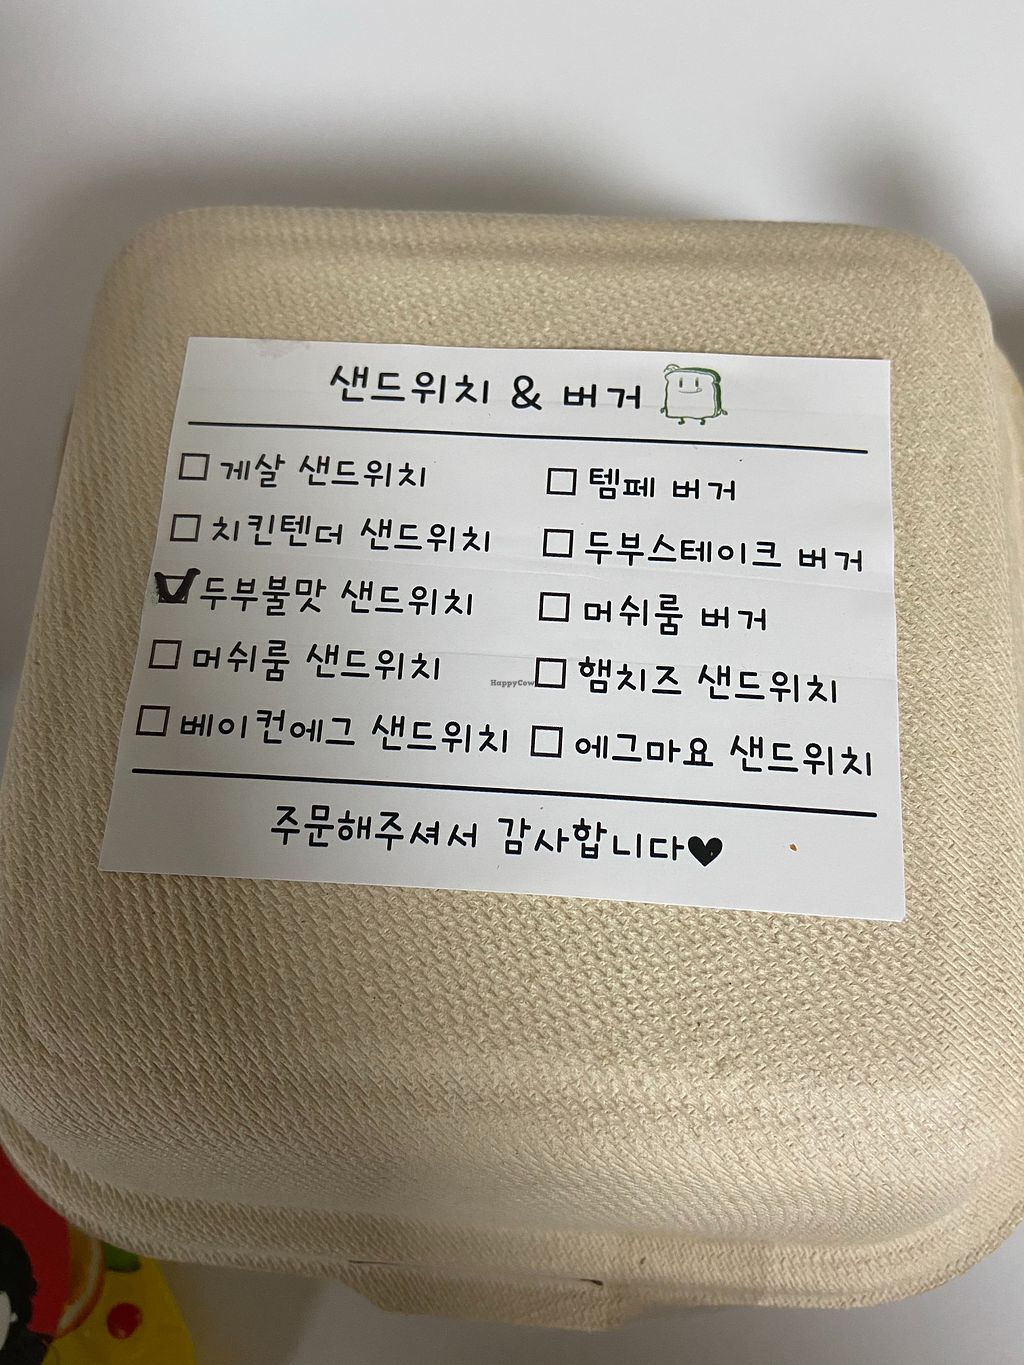 샌드위치 & 버거
□ 게살 샌드위치
□ 치킨텐더 샌드위치
☑ 두부불맛 샌드위치
□ 머쉬룸 샌드위치
□ 베이컨에그 샌드위치
□ 템페 버거
□ 두부스테이크 버거
□ 머쉬룸 버거
□ 햄치즈 샌드위치
□ 에그마요 샌드위치
주문해주셔서 감사합니다♥
HappyCow